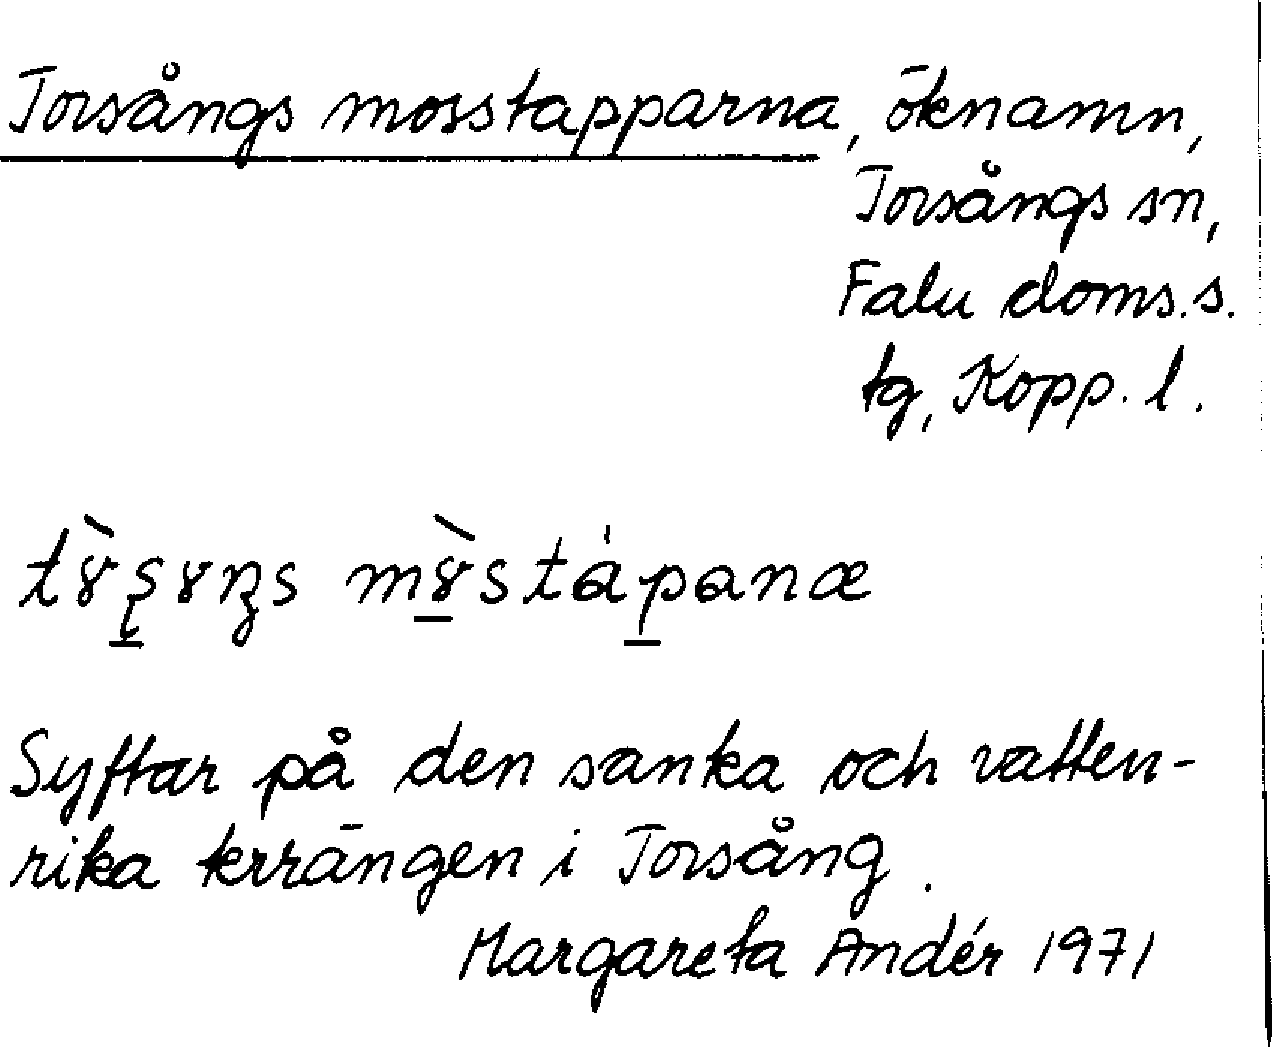 Torsångs mosstapparna, öknamn,
Torsångs sn,
Falu doms.s.
tg, Kopp. l.
Syftar på den sanka och vatten-
rika terrängen i Torsång.
Margareta Andér 1971